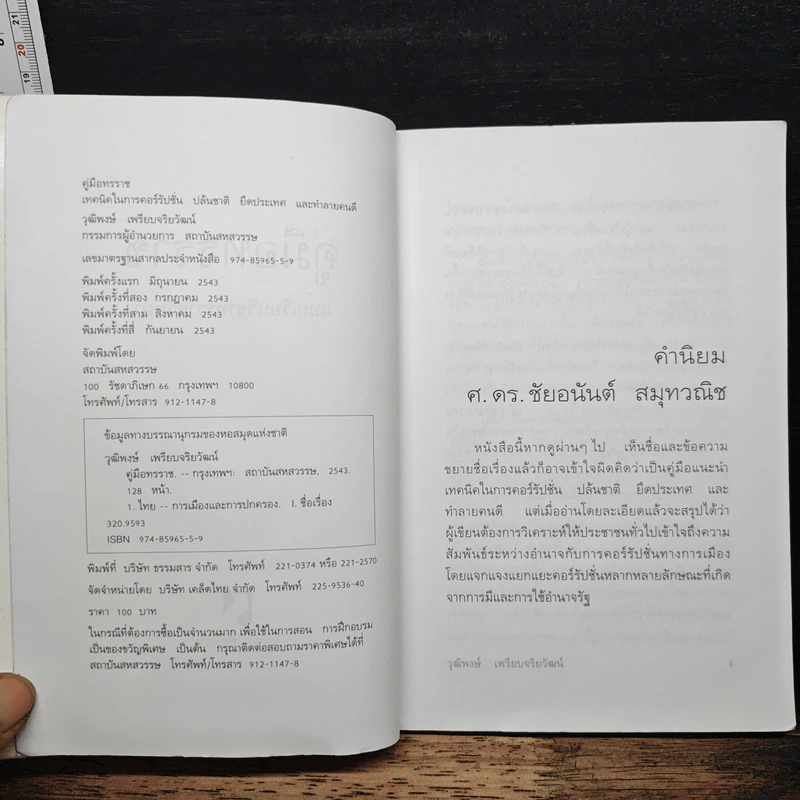 คู่มือทรราช
เทคนิคในการคอร์รัปชั่น ปล้นชาติ ยึดประเทศ และทำลายคนดี
วุฒิพงษ์ เพรียบจริยวัฒน์
กรรมการผู้อำนวยการ สถาบันสหสวรรษ
เลขมาตรฐานสากลประจำหนังสือ 974-85965-5-9
พิมพ์ครั้งแรก มิถุนายน 2543
พิมพ์ครั้งที่สอง กรกฎาคม 2543
พิมพ์ครั้งที่สาม สิงหาคม 2543
พิมพ์ครั้งที่สี่ กันยายน 2543
จัดพิมพ์โดย
สถาบันสหสวรรษ
100 รัชดาภิเษก 66 กรุงเทพฯ 10800
โทรศัพท์/โทรสาร 912-1147-8
ข้อมูลทางบรรณานุกรมของหอสมุดแห่งชาติ
วุฒิพงษ์ เพรียบจริยวัฒน์
คู่มือทรราช. -- กรุงเทพฯ: สถาบันสหสวรรษ, 2543.
128 หน้า.
1. ไทย -- การเมืองและการปกครอง. I. ชื่อเรื่อง
320.9593
ISBN 974-85965-5-9
พิมพ์ที่ บริษัท ธรรมสาร จำกัด โทรศัพท์ 221-0374 หรือ 221-2570
จัดจำหน่ายโดย บริษัท เคล็ดไทย จำกัด โทรศัพท์ 225-9536-40
ราคา 100 บาท
ในกรณีที่ต้องการซื้อเป็นจำนวนมาก เพื่อใช้ในการสอน การฝึกอบรม
เป็นของขวัญพิเศษ เป็นต้น กรุณาติดต่อสอบถามราคาพิเศษได้ที่
สถาบันสหสวรรษ โทรศัพท์/โทรสาร 912-1147-8
คำนิยม
ศ.ดร.ชัยอนันต์ สมุทวณิช
หนังสือนี้หากดูผ่านๆ ไป เห็นชื่อและข้อความ
ขยายชื่อเรื่องแล้วก็อาจเข้าใจผิดคิดว่าเป็นคู่มือแนะนำ
เทคนิคในการคอร์รัปชั่น ปล้นชาติ ยึดประเทศ และ
ทำลายคนดี แต่เมื่ออ่านโดยละเอียดแล้วจะสรุปได้ว่า
ผู้เขียนต้องการวิเคราะห์ให้ประชาชนทั่วไปเข้าใจถึงความ
สัมพันธ์ระหว่างอำนาจกับการคอร์รัปชั่นทางการเมือง
โดยแจกแจงแยกแยะคอร์รัปชั่นหลากหลายลักษณะที่เกิด
จากการมีและการใช้อำนาจรัฐ
วุฒิพงษ์ เพรียบจริยวัฒน์
19 20 21